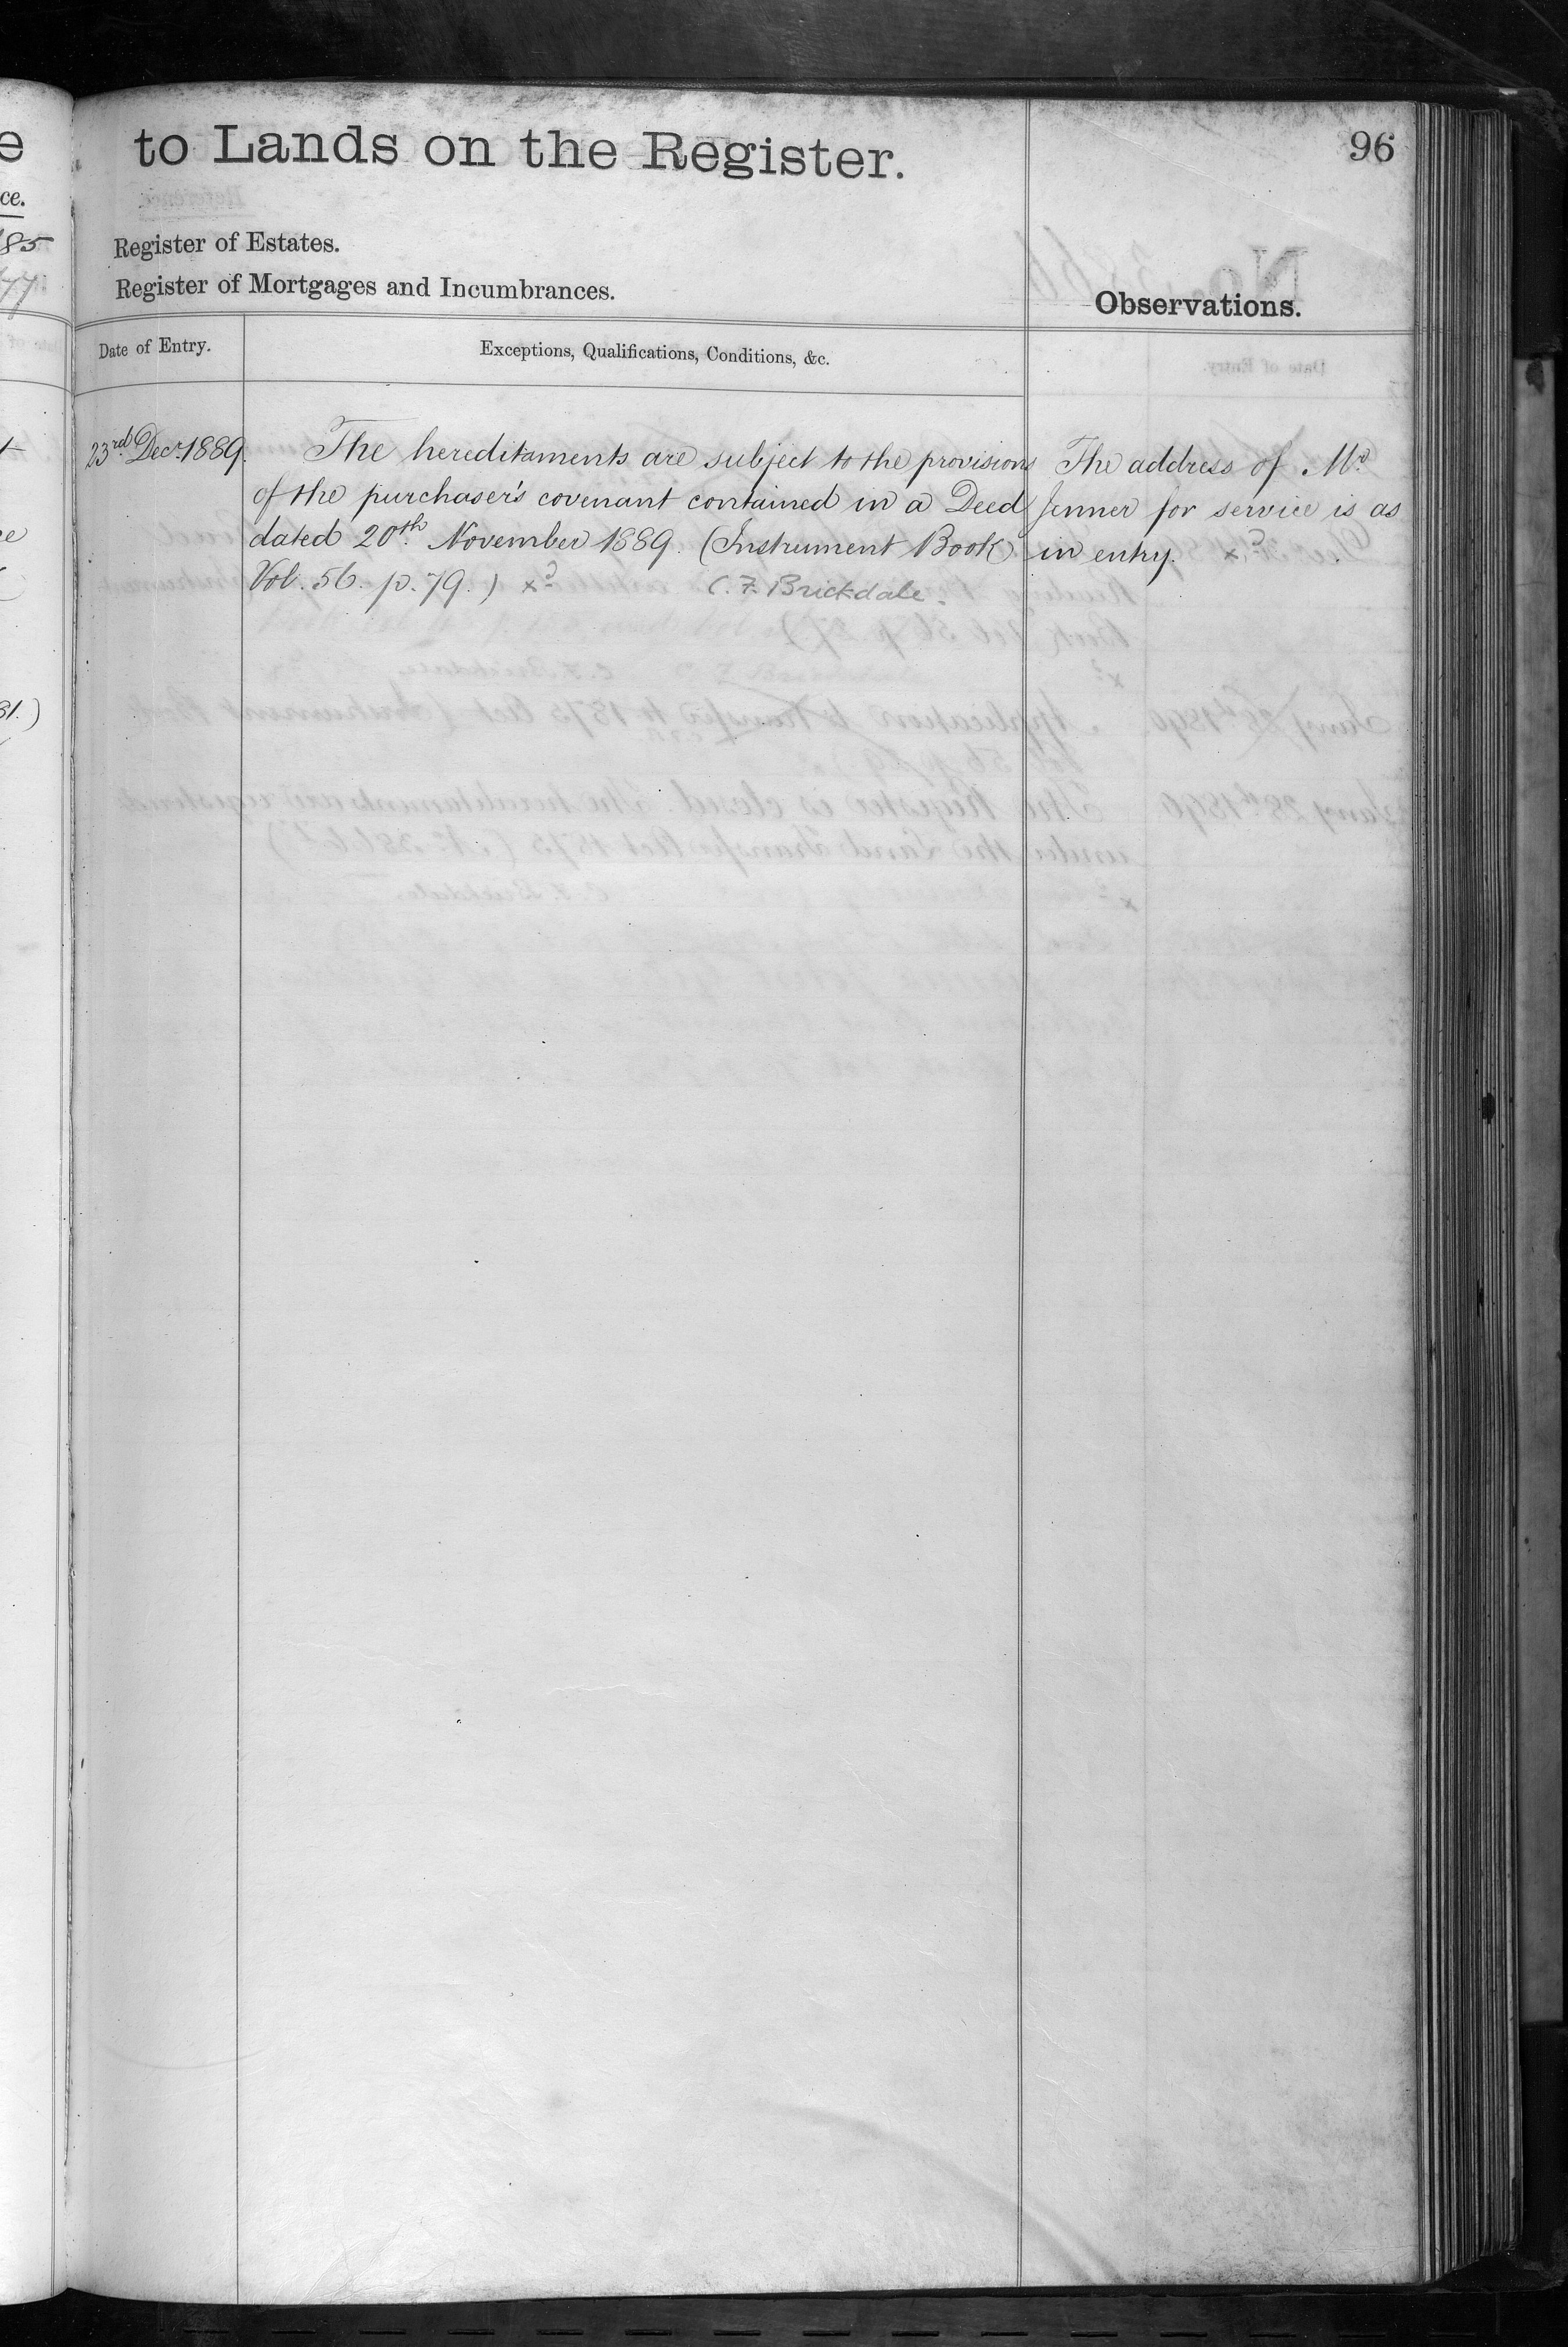 to Lands on the Register.
96
Register of Estates.
Register of Mortgages and Incumbrances.
Observations.
Date of Entry.
Exceptions, Qualifications, Conditions, &c.
23rd Decr. 1889.
The hereditaments are subject to the provisions
of the purchaser's covenant contained in a Deed
dated 20th November 1889. (Instrument Book
Vol. 56. p. 79.)
C. F. Brickdale.
The address of Mr
Jenner for service is as
in entry.
e
ce.
85
81.)